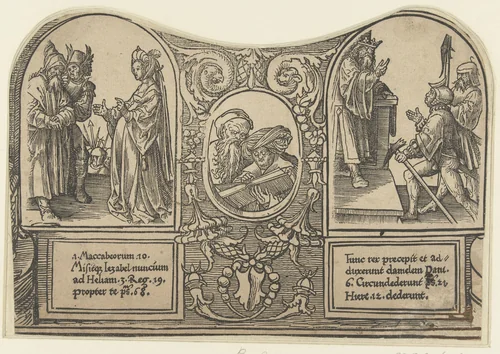 1. Maccabeorum 10.
Misitqz Iezabel nuncium
ad Heliam. 3. Reg. 19.
propter te ps. 68.
Tunc rex precepit et ad/
duxerunt danielem Dani.
6. Circundederunt ps. 21.
Hiere. 12. dederunt.